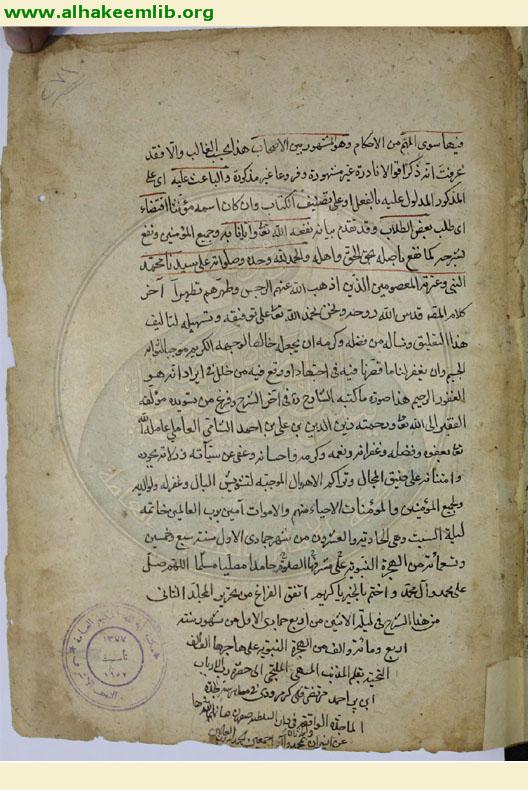 www.alhakeemlib.org
فيها سوى المهم من الاحكام وهو المشهور بين الاصحاب هذا بحسب الغالب والا فقد
عرفت انه ذكر اقوالا نادرة غير مشهورة وفروعا غير مذكورة والباعث عليه اى على
المذكور المدلول عليه بالفعل او على تصنيف الكتاب وان كان اسمه مؤنثا اقتضاء
اى طلب بعض الطلاب وقد تقدم بيانه نفعه الله تعالى وايانا به وجميع المؤمنين ونفع
بشرحه كما نفع باصله بحق الحق واهله والحمد لله وحده وصلواته على سيدنا محمد
النبى وعترته المعصومين الذين اذهب الله عنهم الرجس وطهرهم تطهيرا آخر
كلام المصنف قدس الله روحه ونحن نحمد الله تعالى على توفيقه وتسهيله لتاليف
هذا التعليق ونساله من فضله وكرمه ان يجعله خالصا لوجهه الكريم موجبا لثوابه
الجسيم وان يغفر لنا ما قصرنا فيه فى اجتهاد او وقع فيه من خلل فى ايراد انه هو
الغفور الرحيم هذا صورة ما كتبه الشارح ره فى آخر الشرح وفرغ من تسويده مؤلفه
الفقير الى الله تعالى ورحمته زين الدين بن على بن احمد الشامى العاملى عامله الله
تعالى بعفوه وفضله وغفرانه ونعمه وكرمه واحسانه وعفى عن سيآته وزلاته بجوده
وامتنانه على ضيق المجال وتراكم الاهوال الموجبة لتشويش البال وغفر له ولوالديه
ولجميع المؤمنين والمؤمنات الاحياء منهم والاموات آمين رب العالمين خاتمة
ليلة السبت وهى الحادية والعشرون من شهر جمادى الاول سنة سبع وخمسين
وتسعمائة من الهجرة النبوية على مشرفها الصلوة حامدا مصليا مسلما اللهم صل
على محمد وآل محمد واختم بالخير يا كريم اتفق الفراغ من تحرير المجلد الثانى
من هذا الشرح فى ليلة الاثنين من اربع جمادى الاول من شهور سنة
اربع ومائة والف من الهجرة النبوية على هاجرها الف الف
التحية بقلم المذنب الملتجى الى حضرت رب الارباب
ابن احمد مرتضى قلى فى بلدة
الواقعة فى صانها الله
١٣٧٧
تأسيس
١٩٥٧